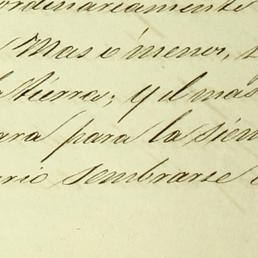 ordinariamente
Mas ó menos,
tierra; y el mas
para para la siem
rio sembrarse